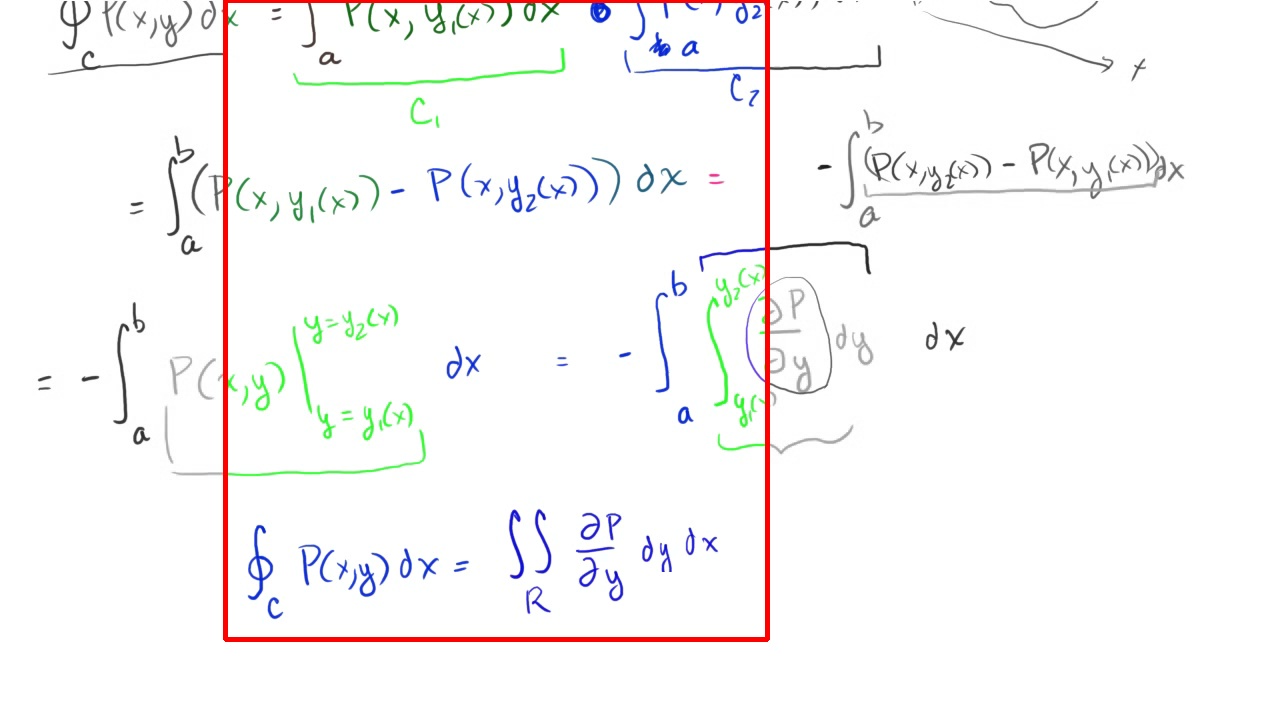 ∮_C P(x,y) dx = ∫_a P(x, y₁(x)) dx ∫_a
C₁ C₂ x
= ∫_a^b (P(x, y₁(x)) - P(x, y₂(x))) dx = - ∫_a^b (P(x, y₂(x)) - P(x, y₁(x))) dx
= - ∫_a^b P(x,y) |_{y = y₁(x)}^{y = y₂(x)} dx = - ∫_a^b ∫_{y₁(x)}^{y₂(x)} ∂P/∂y dy dx
∮_C P(x,y) dx = ∬_R ∂P/∂y dy dx